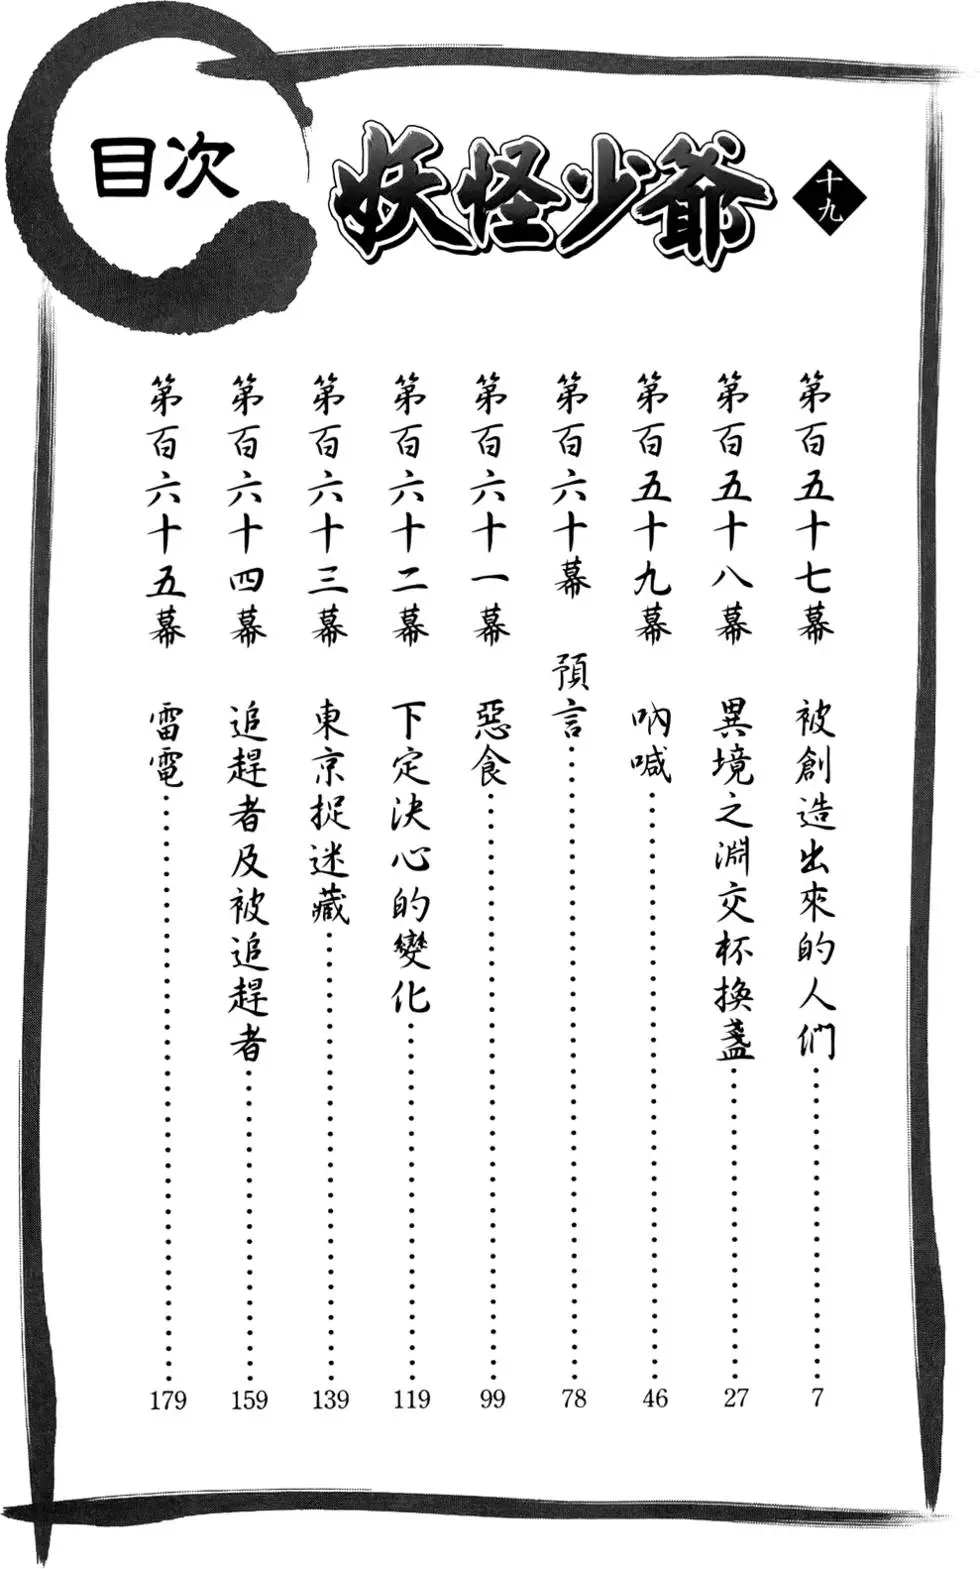 目次
妖怪少爺
十九
第百五十七幕 被創造出來的人們……7
第百五十八幕 異境之淵交杯換盞……27
第百五十九幕 吶喊……46
第百六十幕 預言……78
第百六十一幕 惡食……99
第百六十二幕 下定決心的變化……119
第百六十三幕 東京捉迷藏……139
第百六十四幕 追趕者及被追趕者……159
第百六十五幕 雷電……179